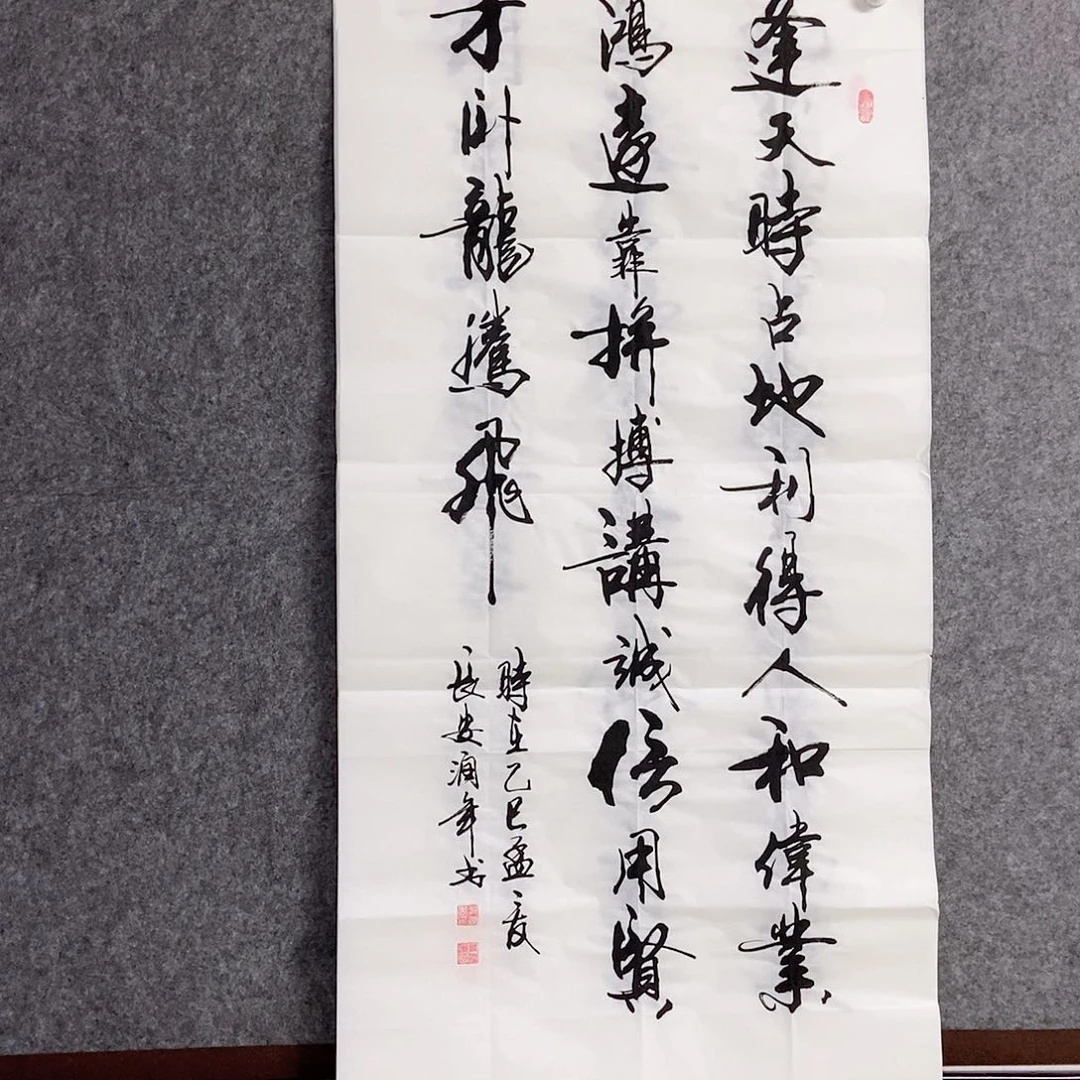 逢天時占地利得人和偉業
鴻達靠拼搏講誠信用賢
才卧龍騰飛
時在乙巳孟夏
長安润年书